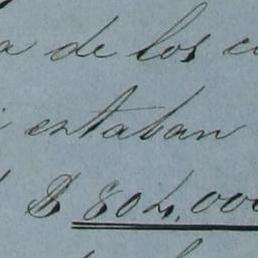 a de los
estaban
$ 804.000